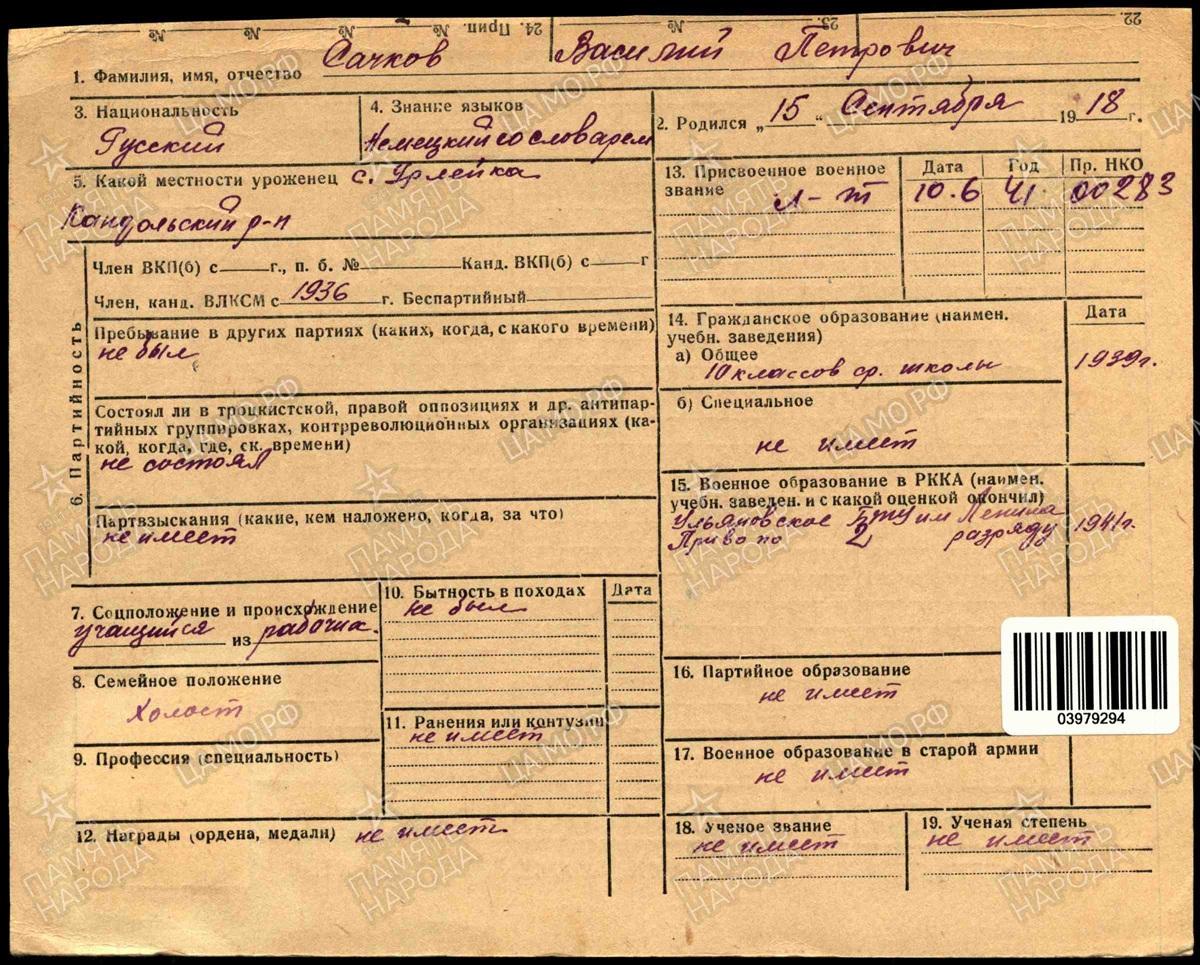 22.
23. №
24. Прип. № № № №
1. Фамилия, имя, отчество Сачков Василий Петрович
3. Национальность
Русский
4. Знание языков
Немецкий со словарем
2. Родился „15“ Сентября 1918 г.
5. Какой местности уроженец с. Урлейка
Кандольский р-н
13. Присвоенное военное звание
Дата Год Пр. НКО
л-т 10.6 41 00283
6. Партийность
Член ВКП(б) с г., п. б. № Канд. ВКП(б) с г
Член, канд. ВЛКСМ с 1936 г. Беспартийный
Пребывание в других партиях (каких, когда, с какого времени)
не был
Состоял ли в троцкистской, правой оппозициях и др. антипар-
тийных группировках, контрреволюционных организациях (ка-
кой, когда, где, ск. времени)
не состоял
Партвзыскания (какие, кем наложено, когда, за что)
не имеет
14. Гражданское образование (наимен.
учебн. заведения)
Дата
а) Общее
10 классов ср. школы 1939г.
б) Специальное
не имеет
15. Военное образование в РККА (наимен.
учебн. заведен. и с какой оценкой окончил)
Ульяновское БТУ им Ленина
Приво по 2 разряду 1941г.
7. Соцположение и происхождение
учащийся из рабочих.
8. Семейное положение
Холост
9. Профессия (специальность)
10. Бытность в походах Дата
не был
11. Ранения или контузии
не имеет
12. Награды (ордена, медали) не имеет
16. Партийное образование
не имеет
03979294
17. Военное образование в старой армии
не имеет
18. Ученое звание
не имеет
19. Ученая степень
не имеет
ПАМЯТЬ НАРОДА
ЦАМО.РФ